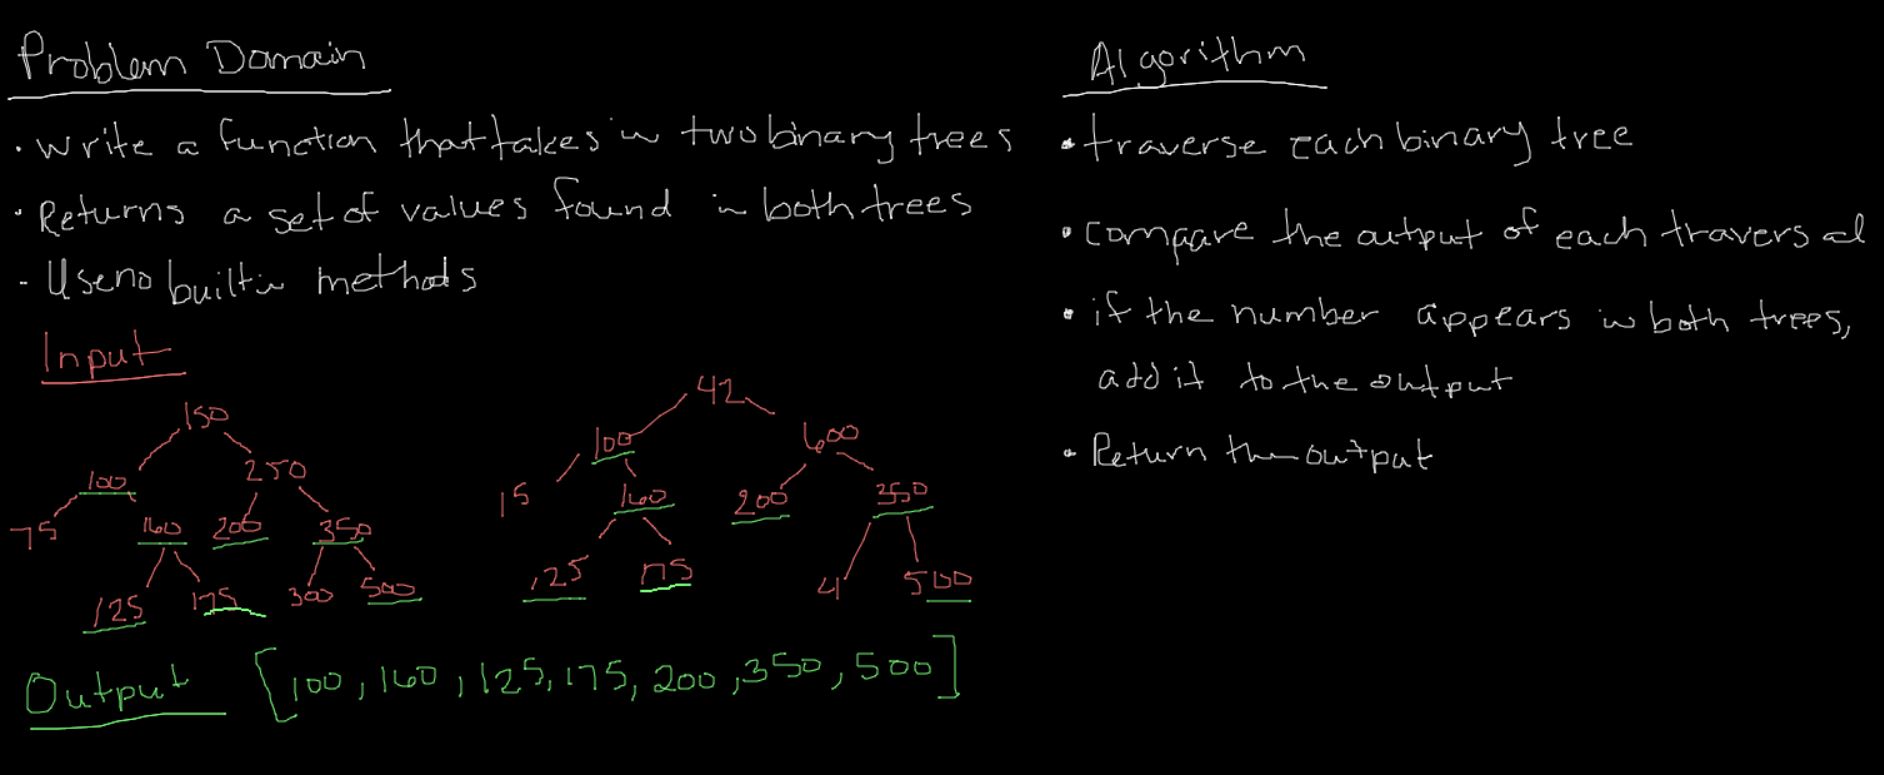 Problem Domain
• Write a function that takes in two binary trees
• Returns a set of values found in both trees
- Use no built in methods
Input
150
100 250
75 160 200 350
125 175 300 500
42
100 600
15 160 200 350
125 175 4 500
Output [100, 160, 125, 175, 200, 350, 500]
Algorithm
• traverse each binary tree
• compare the output of each traversal
• if the number appears in both trees,
add it to the output
• Return the output